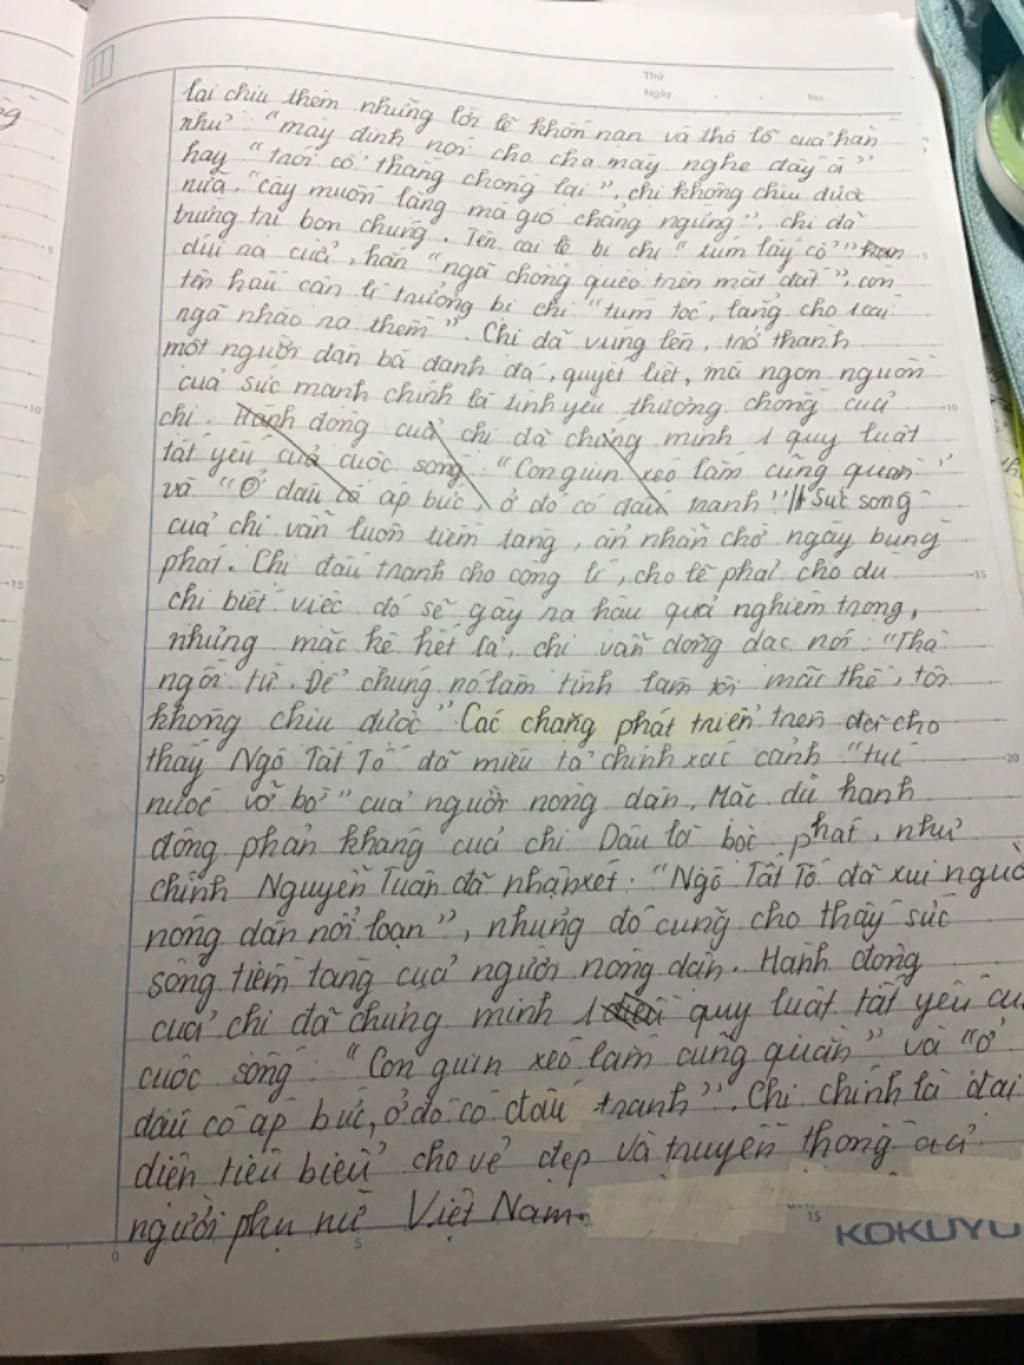 Thứ
Ngày No.
lại chịu thêm những lời lẽ khốn nạn và thô lỗ của hắn
như "mày định nói cho cha mày nghe đấy à"
hay "trói cổ thằng chồng lại", chị không chịu được
nữa. "cây muốn lặng mà gió chẳng ngừng", chị đã
trừng trị bọn chúng. Tên cai lệ bị chị "túm lấy cổ"
dúi ra cửa, hắn "ngã chỏng quèo trên mặt đất", còn
tên hầu cận lí trưởng bị chị "túm tóc, lẳng cho 1 cái
ngã nhào ra thềm". Chị đã vùng lên, trở thành
một người đàn bà đanh đá, quyết liệt, mà ngọn nguồn
của sức mạnh chính là tình yêu thương chồng của
chị. Hành động của chị đã chứng minh 1 quy luật
tất yếu của cuộc sống: "Con giun xéo lắm cũng quằn"
và "Ở đâu có áp bức, ở đó có đấu tranh" Sức sống
của chị vẫn luôn tiềm tàng, ẩn nhẫn chờ ngày bùng
phát. Chị đấu tranh cho công lí, cho lẽ phải cho dù
chị biết việc đó sẽ gây ra hậu quả nghiêm trọng,
nhưng mặc kệ hết cả, chị vẫn dõng dạc nói: "Thà
ngồi tù. Để chúng nó làm tình làm tội mãi thế, tôi
không chịu được" Các chặng phát triển trên đã cho
thấy Ngô Tất Tố đã miêu tả chính xác cảnh "tức
nước vỡ bờ" của người nông dân. Mặc dù hành
động phản kháng của chị Dậu là bộc phát, như
chính Nguyễn Tuân đã nhận xét: "Ngô Tất Tố đã xui ngườ
nông dân nổi loạn", nhưng đó cũng cho thấy sức
sống tiềm tàng của người nông dân. Hành động
của chị đã chứng minh 1 quy luật tất yếu củ
cuộc sống: "Con giun xéo lắm cũng quằn" và "ở
đâu có áp bức, ở đó có đấu tranh". Chị chính là đại
diện tiêu biểu cho vẻ đẹp và truyền thống của
người phụ nữ Việt Nam.
KOKUYO